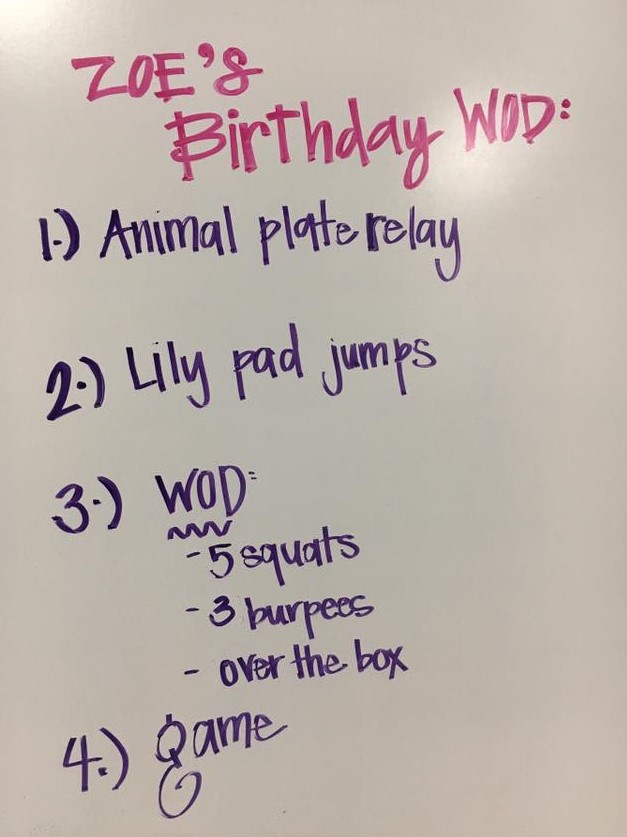 ZOE'S
Birthday WOD:
1.) Animal plate relay
2.) Lily pad jumps
3.) WOD:
- 5 squats
- 3 burpees
- over the box
4.) Game